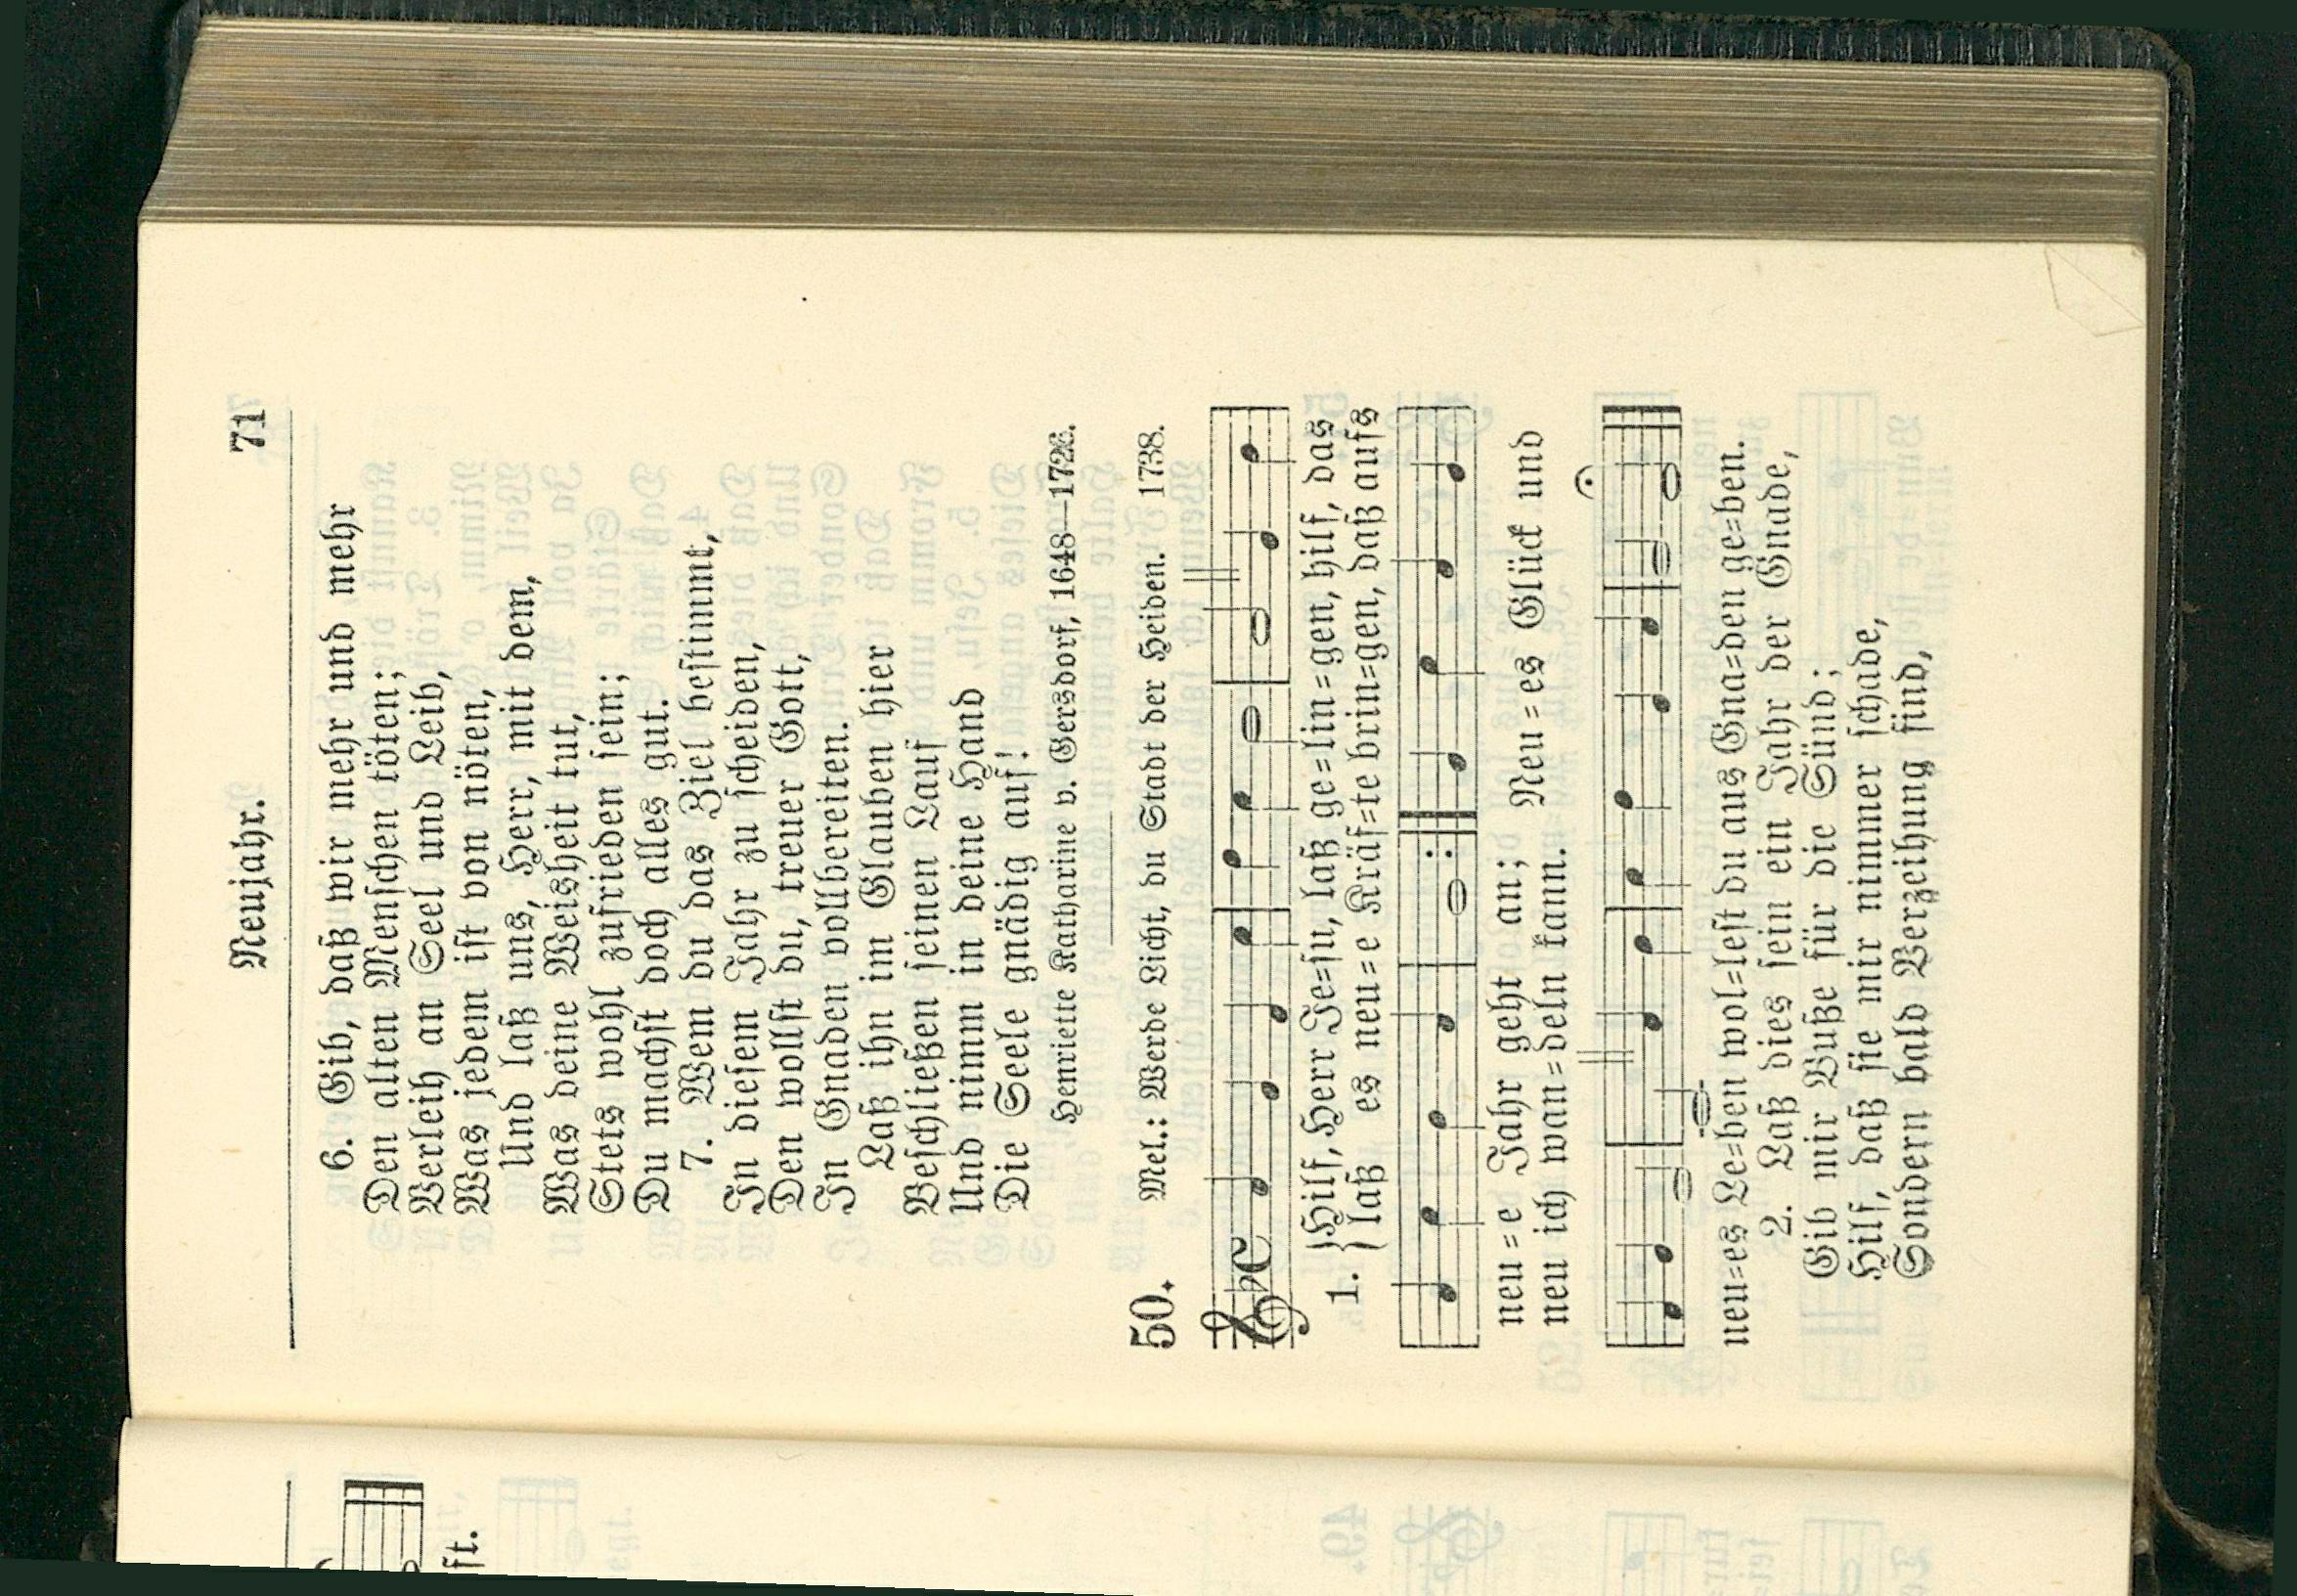 Neujahr. 71
6. Gib, daß wir mehr und mehr
Den alten Menschen töten;
Verleih an Seel und Leib,
Was jedem ist von nöten,
Und laß uns, Herr, mit dem,
Was deine Weisheit tut,
Stets wohl zufrieden sein;
Du machst doch alles gut.
7. Wem du das Ziel bestimmt,
In diesem Jahr zu scheiden,
Den wollst du, treuer Gott,
In Gnaden vollbereiten.
Laß ihn im Glauben hier
Beschließen seinen Lauf
Und nimm in deine Hand
Die Seele gnädig auf!
Henriette Katharine v. Gersdorf, 1648—1726.
50. Mel.: Werde Licht, du Stadt der Heiden. 1738.
1. {Hilf, Herr Je=su, laß ge=lin=gen, hilf, das
{laß es neu=e Kräf=te brin=gen, daß aufs
neu=e Jahr geht an; Neu=es Glück und
neu ich wan=deln kann.
neu=es Le=ben wol=lest du aus Gna=den ge=ben.
2. Laß dies sein ein Jahr der Gnade,
Gib mir Buße für die Sünd;
Hilf, daß sie mir nimmer schade,
Sondern bald Verzeihung find,
ft.